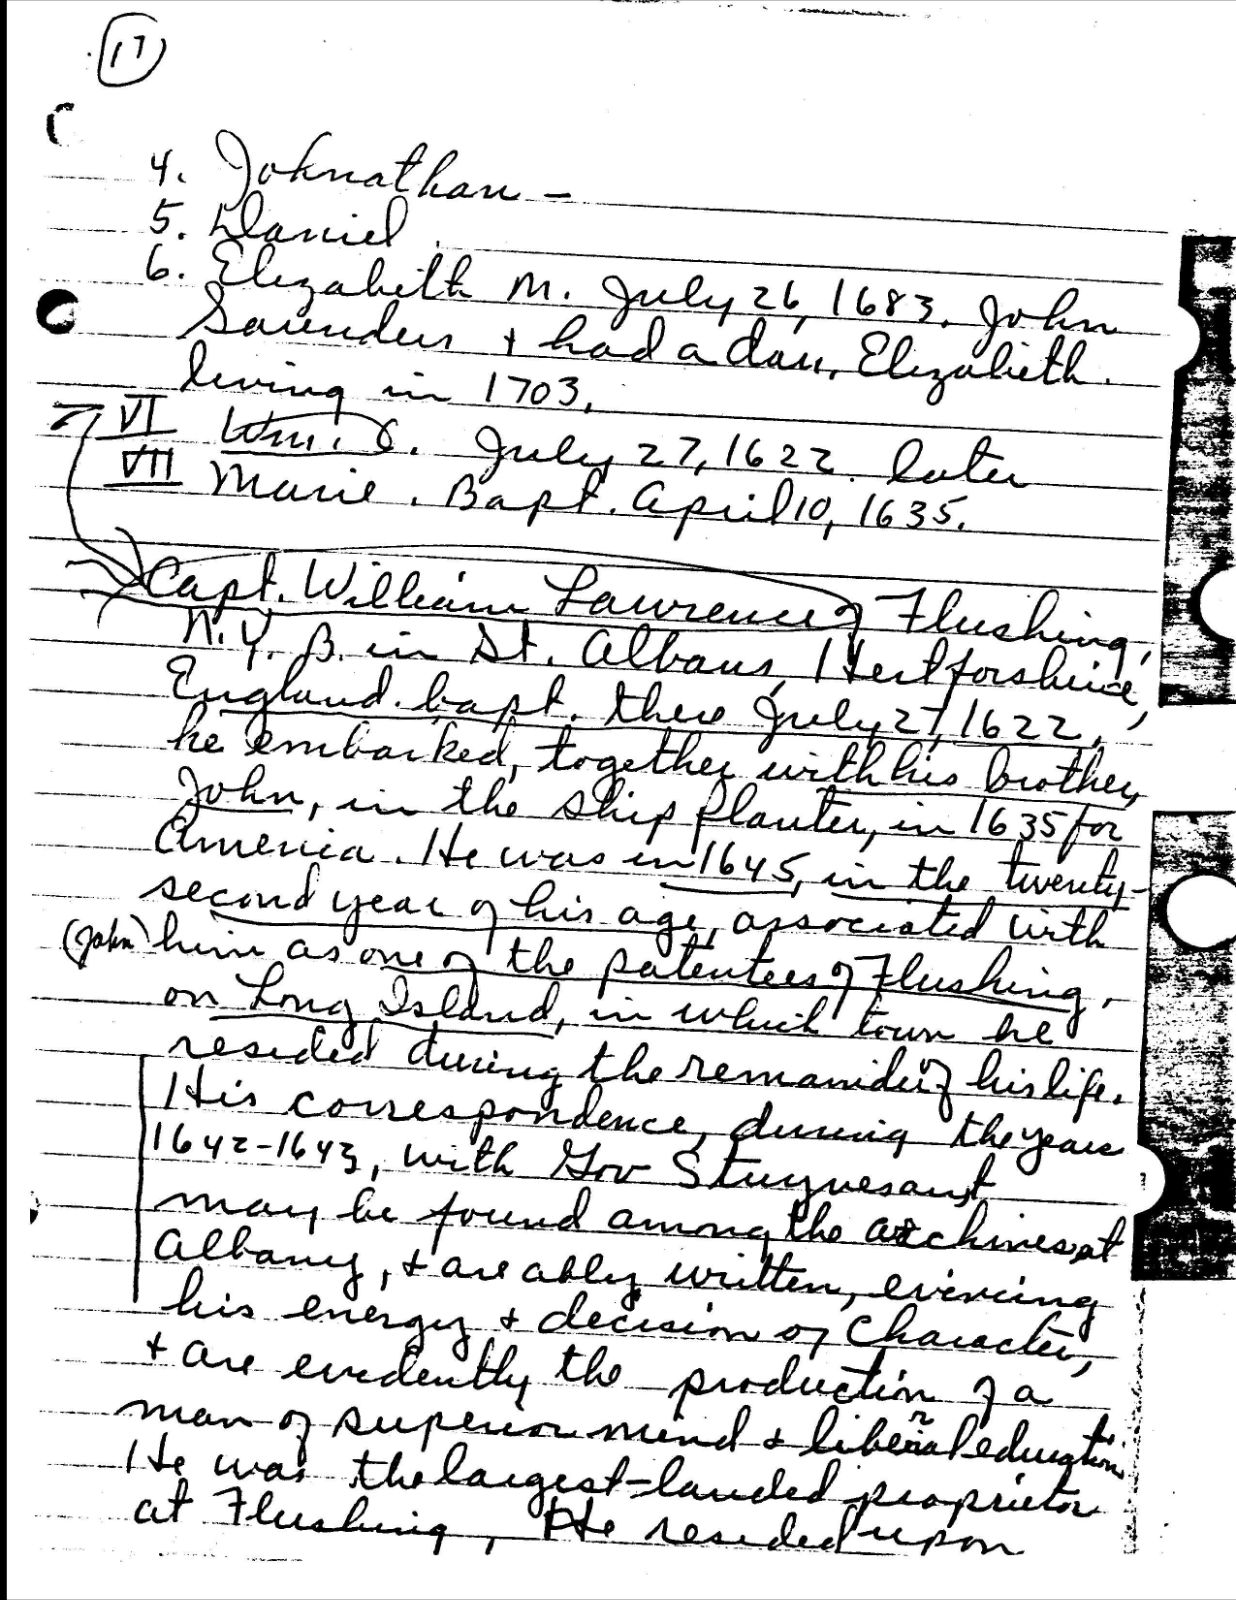 17
4. Johnathan -
5. Daniel.
6. Elizabeth M. July 26, 1683. John
Saunders + had a dau, Elizabeth.
living in 1703,
VI Wm. C. July 27, 1622. later
VII Marie. Bapt. April 10, 1635.
Capt. William Lawrence of Flushing,
N.Y. B. in St. Albans, Hertforshire,
England. bapt. there July 27, 1622,
he embarked, together with his brother,
John, in the ship planter, in 1635 for
America. He was in 1645, in the twenty-
second year of his age, associated with
(John) him as one of the patentees of Flushing,
on Long Island, in which town he
resided during the remainder of his life.
His correspondence, during the years
1642-1643, with Gov Stuyvesant
may be found among the archives, at
Albany, + are ably written, evincing
his energy + decision of Character,
+ are evidently the production of a
man of superior mind + liberal education.
He was the largest-landed proprietor
at Flushing, He resided upon